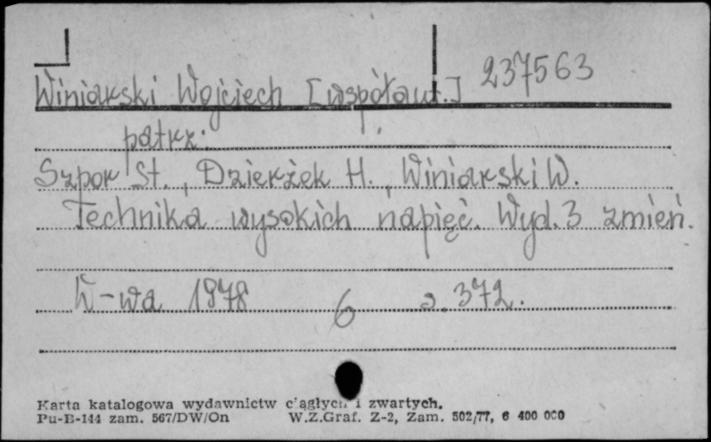 Winiarski Wojciech [współaut.] 237563
patrz:
Szpor St., Dzierżek H., Winiarski W.
Technika wysokich napięć. Wyd. 3 zmień.
W-wa 1978 6 s. 372.
Karta katalogowa wydawnictw ciągłych i zwartych.
Pu-B-144 zam. 567/DW/On W.Z.Graf. Z-2, Zam. 502/77, 6 400 000